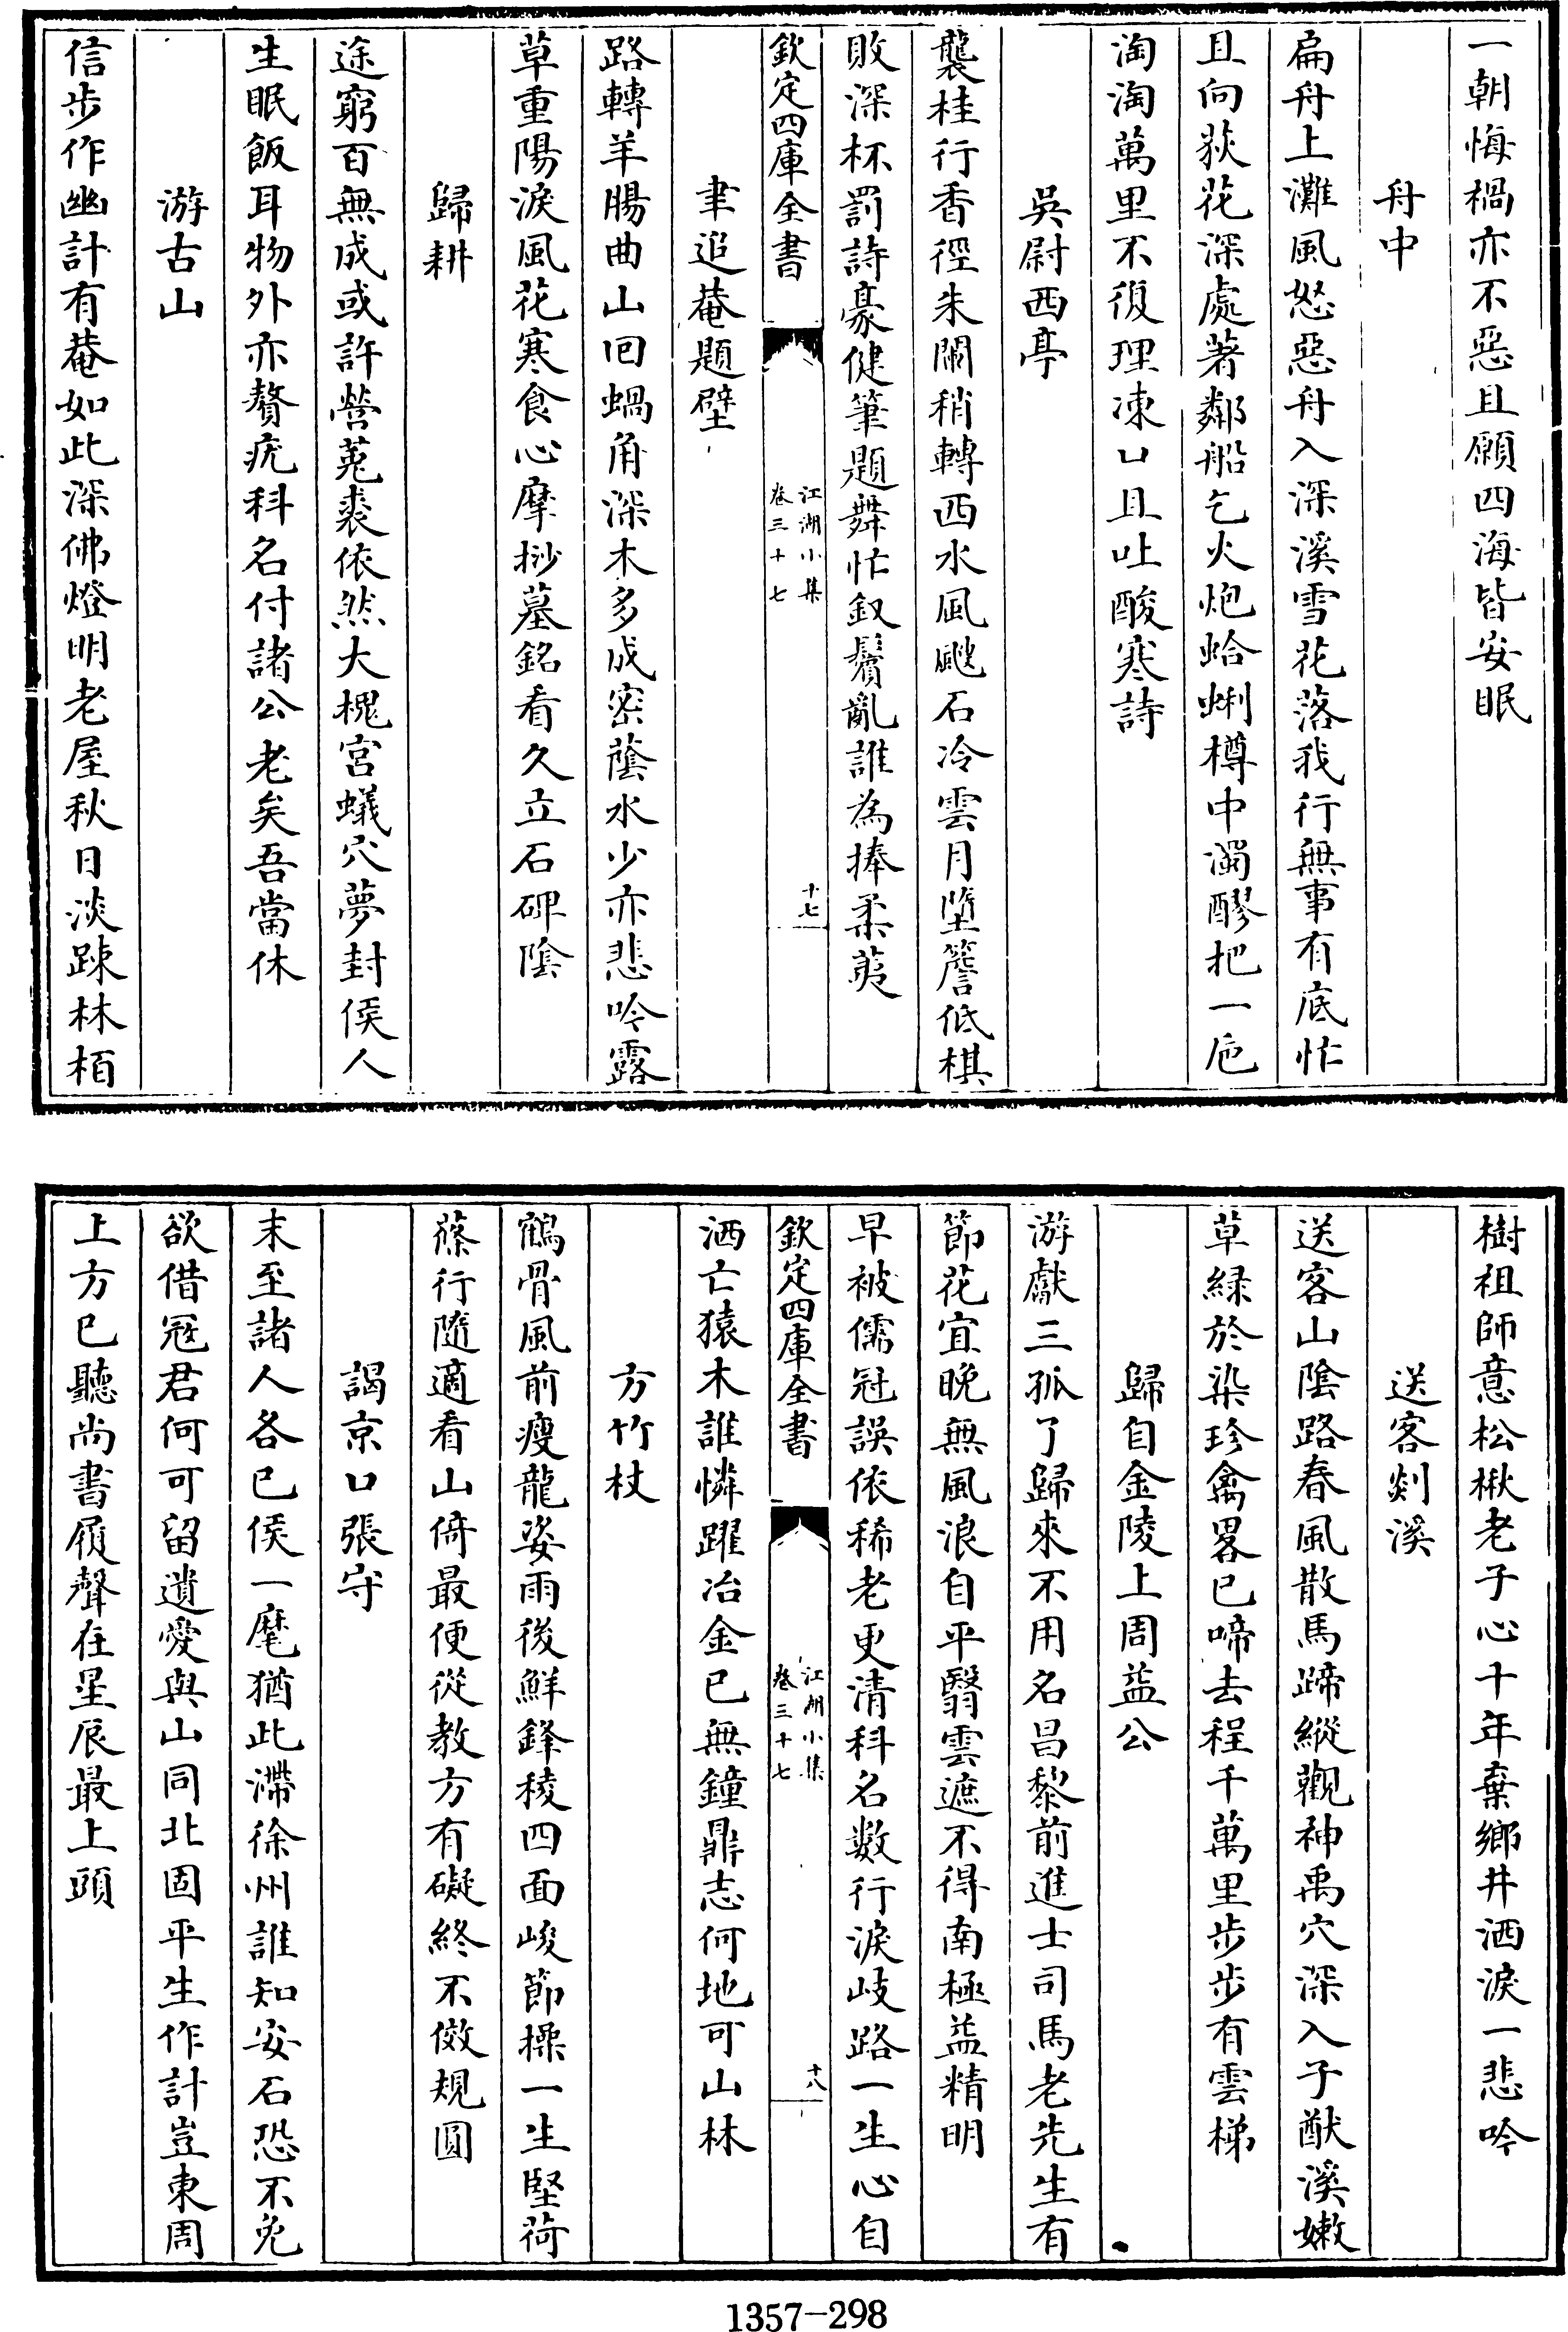 一朝悔禍亦不惡且願四海皆安眠
舟中
扁舟上灘風怒惡舟入深溪雪花落我行無事有底忙
且向荻花深處著鄰船乞火炮蛤蜊樽中濁醪把一巵
淘淘萬里不復理凍口且吐酸寒詩
吳尉西亭
襲桂行香徑朱闌稍轉西水風飀石冷雲月墮簷低棋
敗深杯罰詩豪健筆題舞忙釵鬢亂誰為捧柔荑
欽定四庫全書
江湖小集
卷三十七
十七
聿追菴題壁
路轉羊腸曲山回蝸角深木多成密蔭水少亦悲吟露
草重陽淚風花寒食心摩挲墓銘看久立石碑陰
歸耕
途窮百無成或許營菟裘依然大槐宮蟻穴夢封侯人
生眠飯耳物外亦贅疣科名付諸公老矣吾當休
游古山
信步作幽計有菴如此深佛燈明老屋秋日淡踈林栢
樹祖師意松楸老子心十年棄鄉井洒淚一悲吟
送客剡溪
送客山陰路春風散馬蹄縱觀神禹穴深入子猷溪嫩
草緑於染珍禽畧已啼去程千萬里步步有雲梯
歸自金陵上周益公
游獻三孤了歸來不用名昌黎前進士司馬老先生有
節花宜晚無風浪自平翳雲遮不得南極益精明
早被儒冠誤依稀老更清科名數行淚岐路一生心自
欽定四庫全書
江湖小集
卷三十七
十八
洒亡猿木誰憐躍冶金已無鐘鼎志何地可山林
方竹杖
鶴骨風前瘦龍姿雨後鮮鋒稜四面峻節操一生堅荷
蓧行隨適看山倚最便從教方有礙終不傚規圓
謁京口張守
末至諸人各已侯一麾猶此滯徐州誰知安石恐不免
欲借冦君何可留遺愛與山同北固平生作計豈東周
上方已聽尚書履聲在星辰最上頭
1357-298